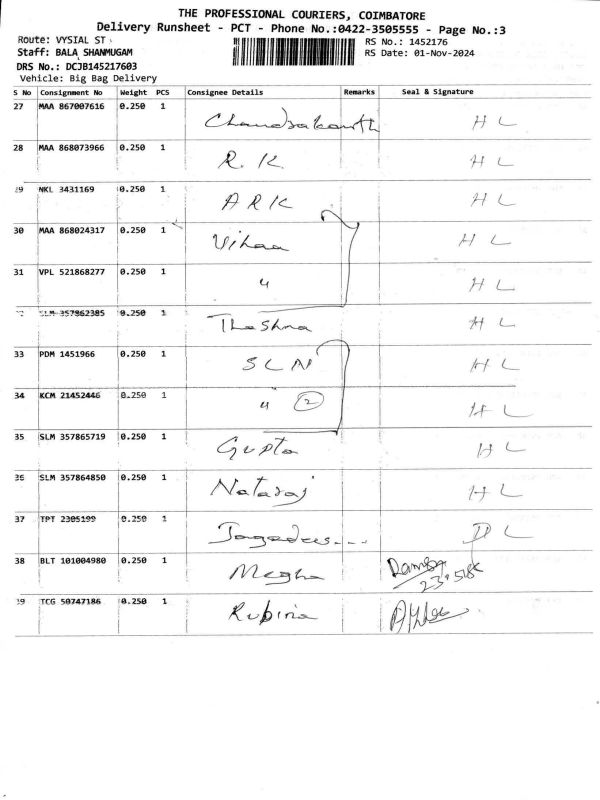 THE PROFESSIONAL COURIERS, COIMBATORE
Delivery Runsheet - PCT - Phone No.:0422-3505555 - Page No.:3
Route: VYSIAL ST
RS No.: 1452176
Staff: BALA SHANMUGAM
RS Date: 01-Nov-2024
DRS No.: DCJB145217603
Vehicle: Big Bag Delivery
S No Consignment No Weight PCS Consignee Details Remarks Seal & Signature
27 MAA 867007616 0.250 1 Chandrakanth H L
28 MAA 868073966 0.250 1 R. K. H L
29 NKL 3431169 0.250 1 A R K H L
30 MAA 868024317 0.250 1 Vihaa H L
31 VPL 521868277 0.250 1 " H L
32 SLM 357862385 0.250 1 Theshna H L
33 PDM 1451966 0.250 1 S L N H L
34 KCM 21452446 0.250 1 " 2 H L
35 SLM 357865719 0.250 1 Gupta H L
36 SLM 357864850 0.250 1 Nataraj H L
37 TPT 2305199 0.250 1 Jagadees... D L
38 BLT 101004980 0.250 1 Megha
39 TCG 50747186 0.250 1 Rubina